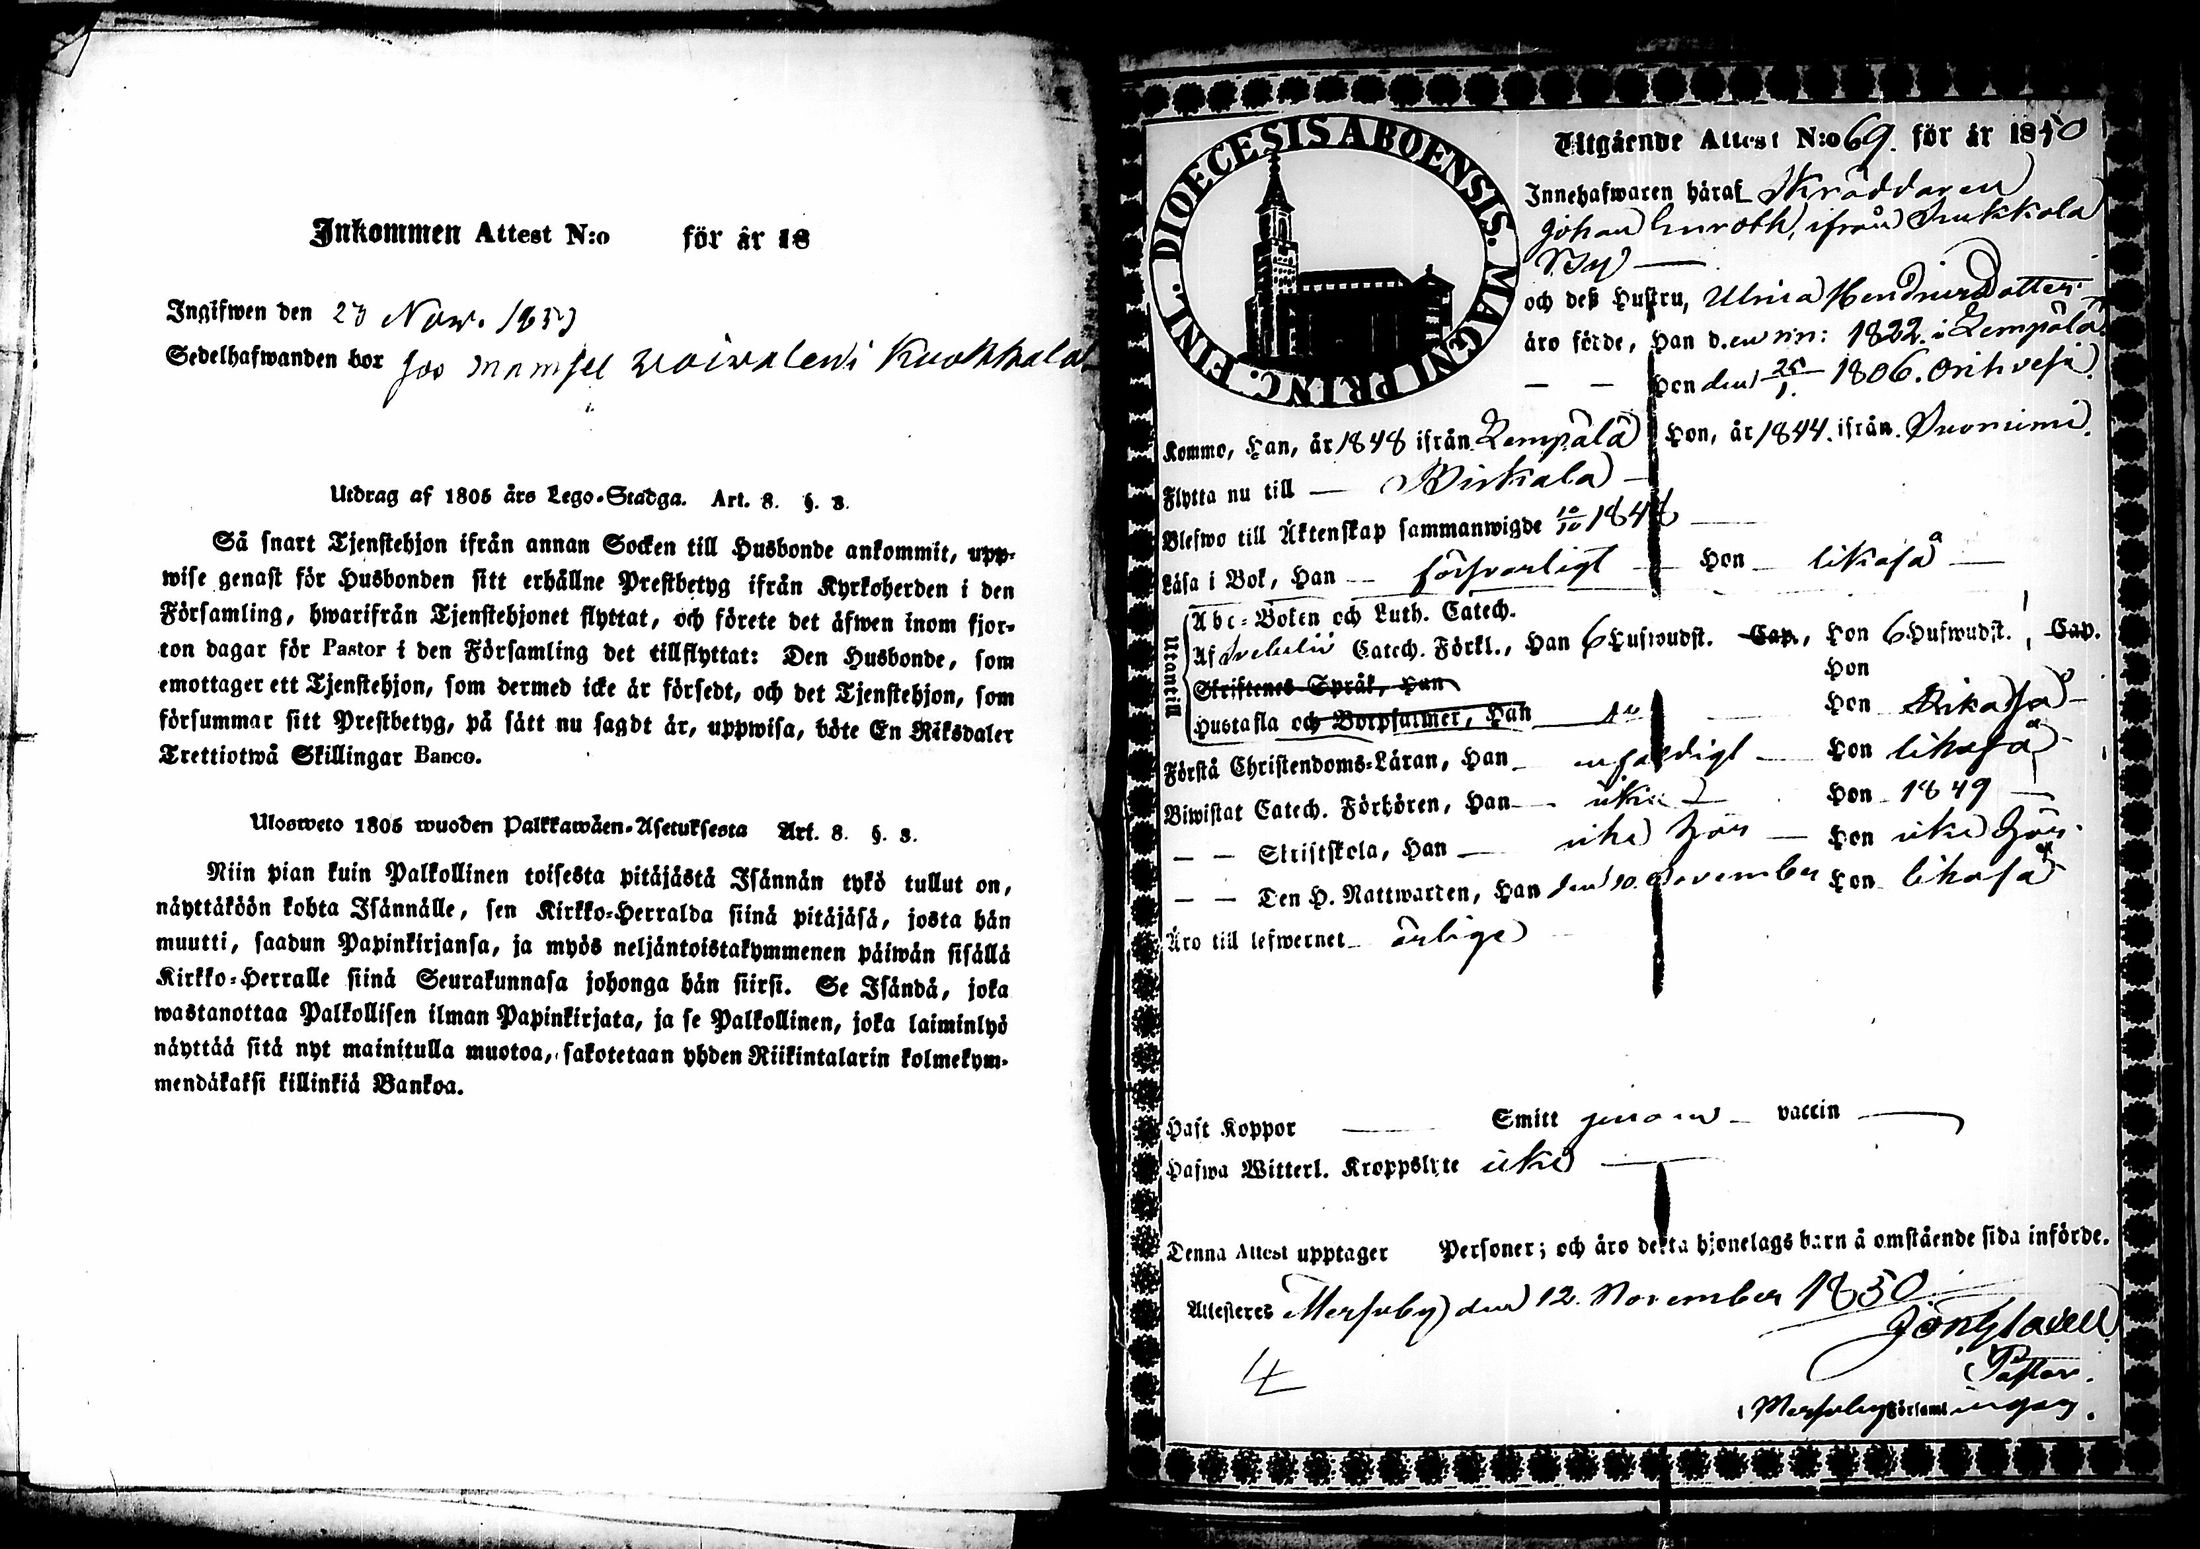 Inkommen Attest N:o för år 18
Ingifwen den 23 Nov. 1850
Sedelhafwanden bor hos mamsel Kuokkala
Utdrag af 1805 års Lego-Stadga. Art. 8. §. 3.
Så snart Tjenstehjon ifrån annan Socken till Husbonde ankommit, upp-
wise genast för Husbonden sitt erhållne Prestbetyg ifrån Kyrkoherden i den
Församling, hwarifrån Tjenstehjonet flyttat, och förete det äfwen inom fjor-
ton dagar för Pastor i den Församling det tillflyttat: Den Husbonde, som
emottager ett Tjenstehjon, som dermed icke är försedt, och det Tjenstehjon, som
försummar sitt Prestbetyg, på sätt nu sagdt är, uppwisa, böte En Riksdaler
Trettiotwå Skillingar Banco.
Ulosweto 1805 wuoden Palkkawäen-Asetuksesta Art. 8. §. 3.
Niin pian kuin Palkollinen toisesta pitäjästä Isännän tykö tullut on,
näyttäköön kohta Isännälle, sen Kirkko-Herralda siinä pitäjäsä, josta hän
muutti, saadun Papinkirjansa, ja myös neljäntoistakymmenen päiwän sisällä
Kirkko-Herralle siinä Seurakunnasa johonga hän siirsi. Se Isändä, joka
wastanottaa Palkollisen ilman Papinkirjata, ja se Palkollinen, joka laiminlyö
näyttää sitä nyt mainitulla muotoa, sakotetaan yhden Riikintalarin kolmekym-
mendäkaksi killinkiä Bankoa.
DIOECESIS ABOENSIS. MAGNI PRINC. FINL.
Utgående Attest N:o 69. för år 1850
Innehafwaren häraf Skräddaren
Johan Enroth, ifrån Sukkola
By
och deß Hustru, Ulrica Hendricsdotter
äro födde, Han den 1822. i Lempälä
— — Hon den 25/1. 1806. Orihvesi.
Kommo, Han, år 1848 ifrån Lempälä Hon, år 1844. ifrån Suoniemi.
Flytta nu till — Birkala —
Blefwo till Äktenskap sammanwigde 10/10 1848
Läsa i Bok, Han — försvarligt — Hon — likaså —
Utantill
Abc-Boken och Luth. Catech.
Af Svebelii Catech. Förkl., Han 6 Hufwudst. Cap., Hon 6 Hufwudst., Cap.
Skriftenes Språk, Han Hon
Hustafla och Botpsalmer, Han Hon likaså
Förstå Christendoms-Läran, Han enfaldigt — Hon likaså
Biwistat Catech. Förhören, Han — icke — Hon 1849
— — Skriftskola, Han — icke här — Hon icke här.
— — Den H. Nattwarden, Han den 10. November Hon likaså
Äro till lefwernet ärlige
Haft Koppor — Smitt genom — vaccin —
Hafwa Witterl. Kroppslyte icke —
Denna Attest upptager Personer; och äro detta hjonelags barn å omstående sida införde.
Attesteres Messuby den 12. November 1850
Pastor.
i Messuby Församling.
4